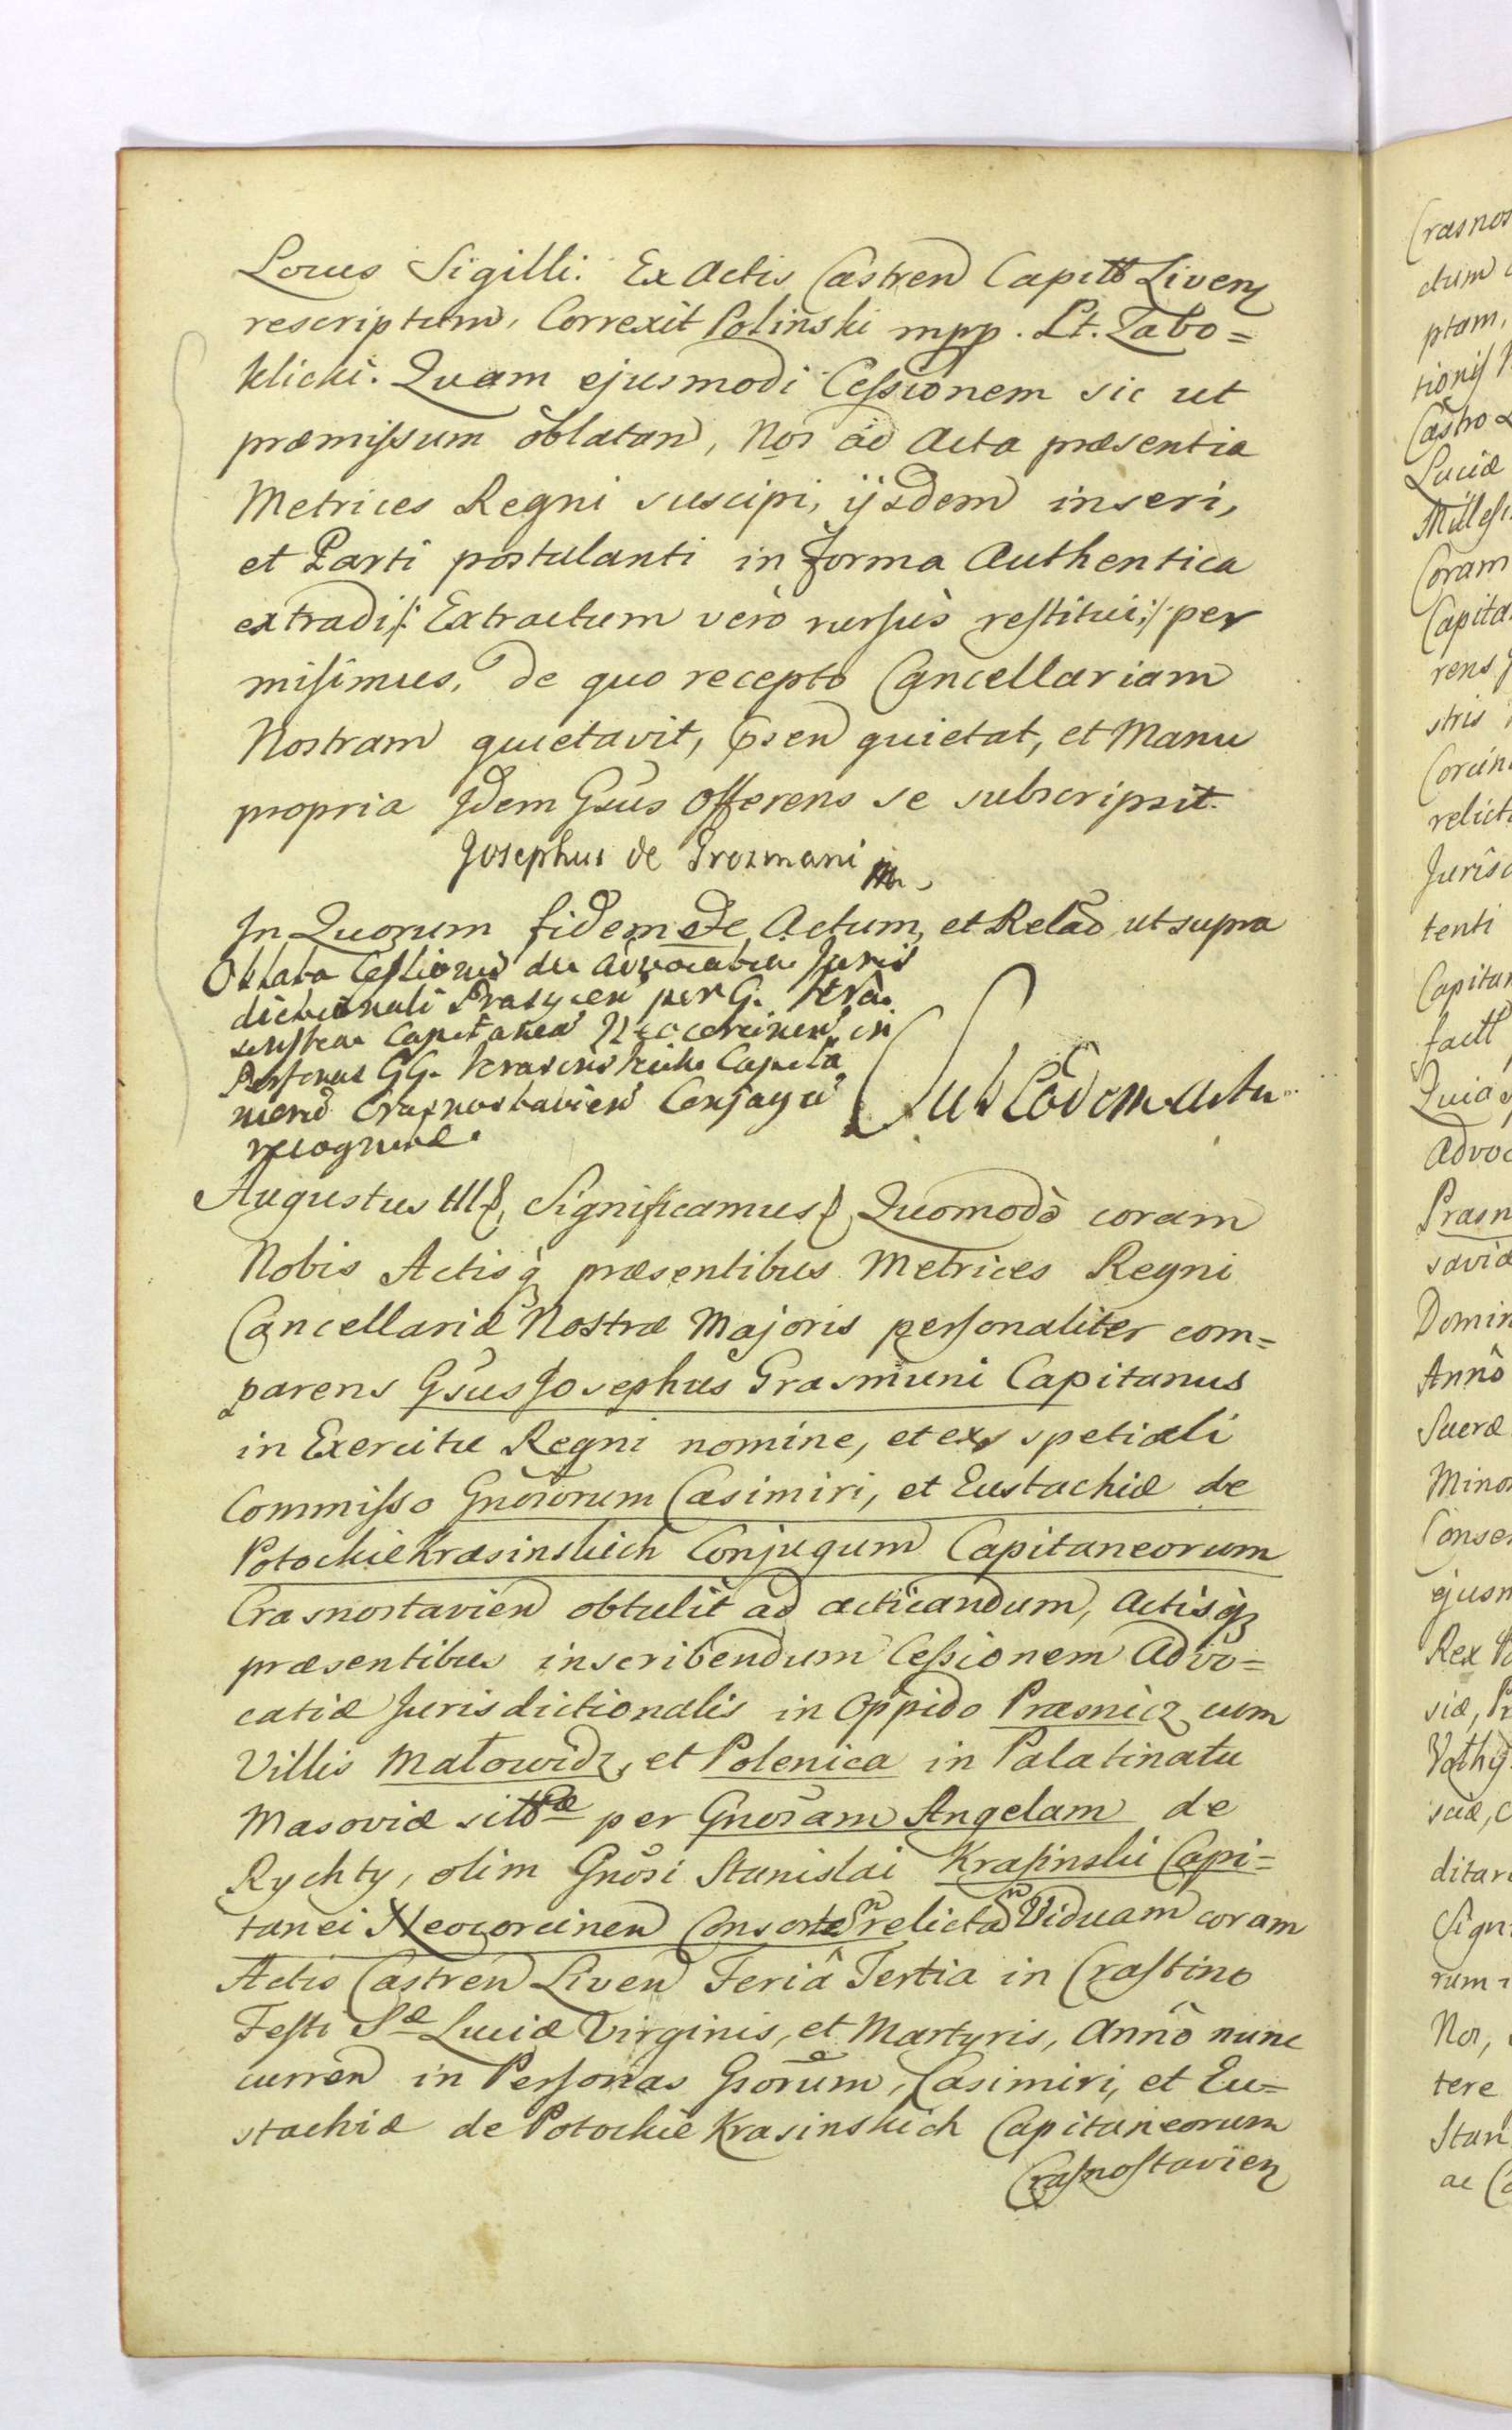 Locus Sigilli. Ex Actis Castren Capitt Liven
rescriptum, Correxit Polinski mpp. Lt. Zabo=
klicki. Quam ejusmodi Cessionem sic ut
præmissum oblatan, Nos ad Acta præsentia
Metrices Regni suscipi, ijsdem inseri,
et Parti postulanti in forma Authentica
extradi /: Extractum vero rursus restitui :/ per
misimus, de quo recepto Cancellariam
Nostram quietavit, Psen quietat, et Manu
propria Jdem Gsus Offerens se subscripsit.
Josephus de Grozmani
Jn Quorum fidem etc Actum, et Relao ut supra
Oblata Cessionis Advocatiæ Juris
dictionali Prasycen per G. Kra
sinskan Capitanea Neocorcinen in
Personas GG. Krasinskich Capita
neord Crasnostavien Conjugu
recognitæ.
Sub Eodem Actu
Augustus III, Significamus Quomodò coram
Nobis Actisq præsentibus Metrices Regni
Cancellariæ Nostræ Majoris personaliter com=
parens Gsus Josephus Grasmuni Capitanus
in Exercitu Regni nomine, et ex speticali
Commisso Gnosorum Casimiri, et Eustachiæ de
Potockie Krasinskich Conjugum Capitaneorum
Crasnostavien obtulit ad acticandum, Actisq
præsentibus inscribendum Cessionem Advo=
catiæ Jurisdictionalis in Oppido Prasnicz cum
Villis Małowidz, et Polenica in Palatinatu
Masoviæ sittæ per Gnosam Angelam de
Rychty, olim Gnosi Stanislai Krasinski Capi=
tanei Neocorcinen Consorte relicta Viduam coram
Actis Castren Liven Feriâ Tertia in Crastino
Festi Sæ Luciæ Virginis, et Martyris, Annô nunc
curren in Personas Gsorum, Casimiri, et Eu=
stachiæ de Potockie Krasinskich Capitaneorum
Crasnostavien
Crasnos
dum
ptam,
tionis
Castro
Luciæ
Milles
Coram
Capita
rens
stris
Corcin
relict
Jurisd
tenti
Capitan
factt
Quia
Advoc
Prasn
saviæ
Domin
Annô
Sacræ
Minor
Conser
ejusm
Rex
siæ, Pr
Volhy
sciæ,
ditar
Sign
rum
Nos,
tere
Stan
ac